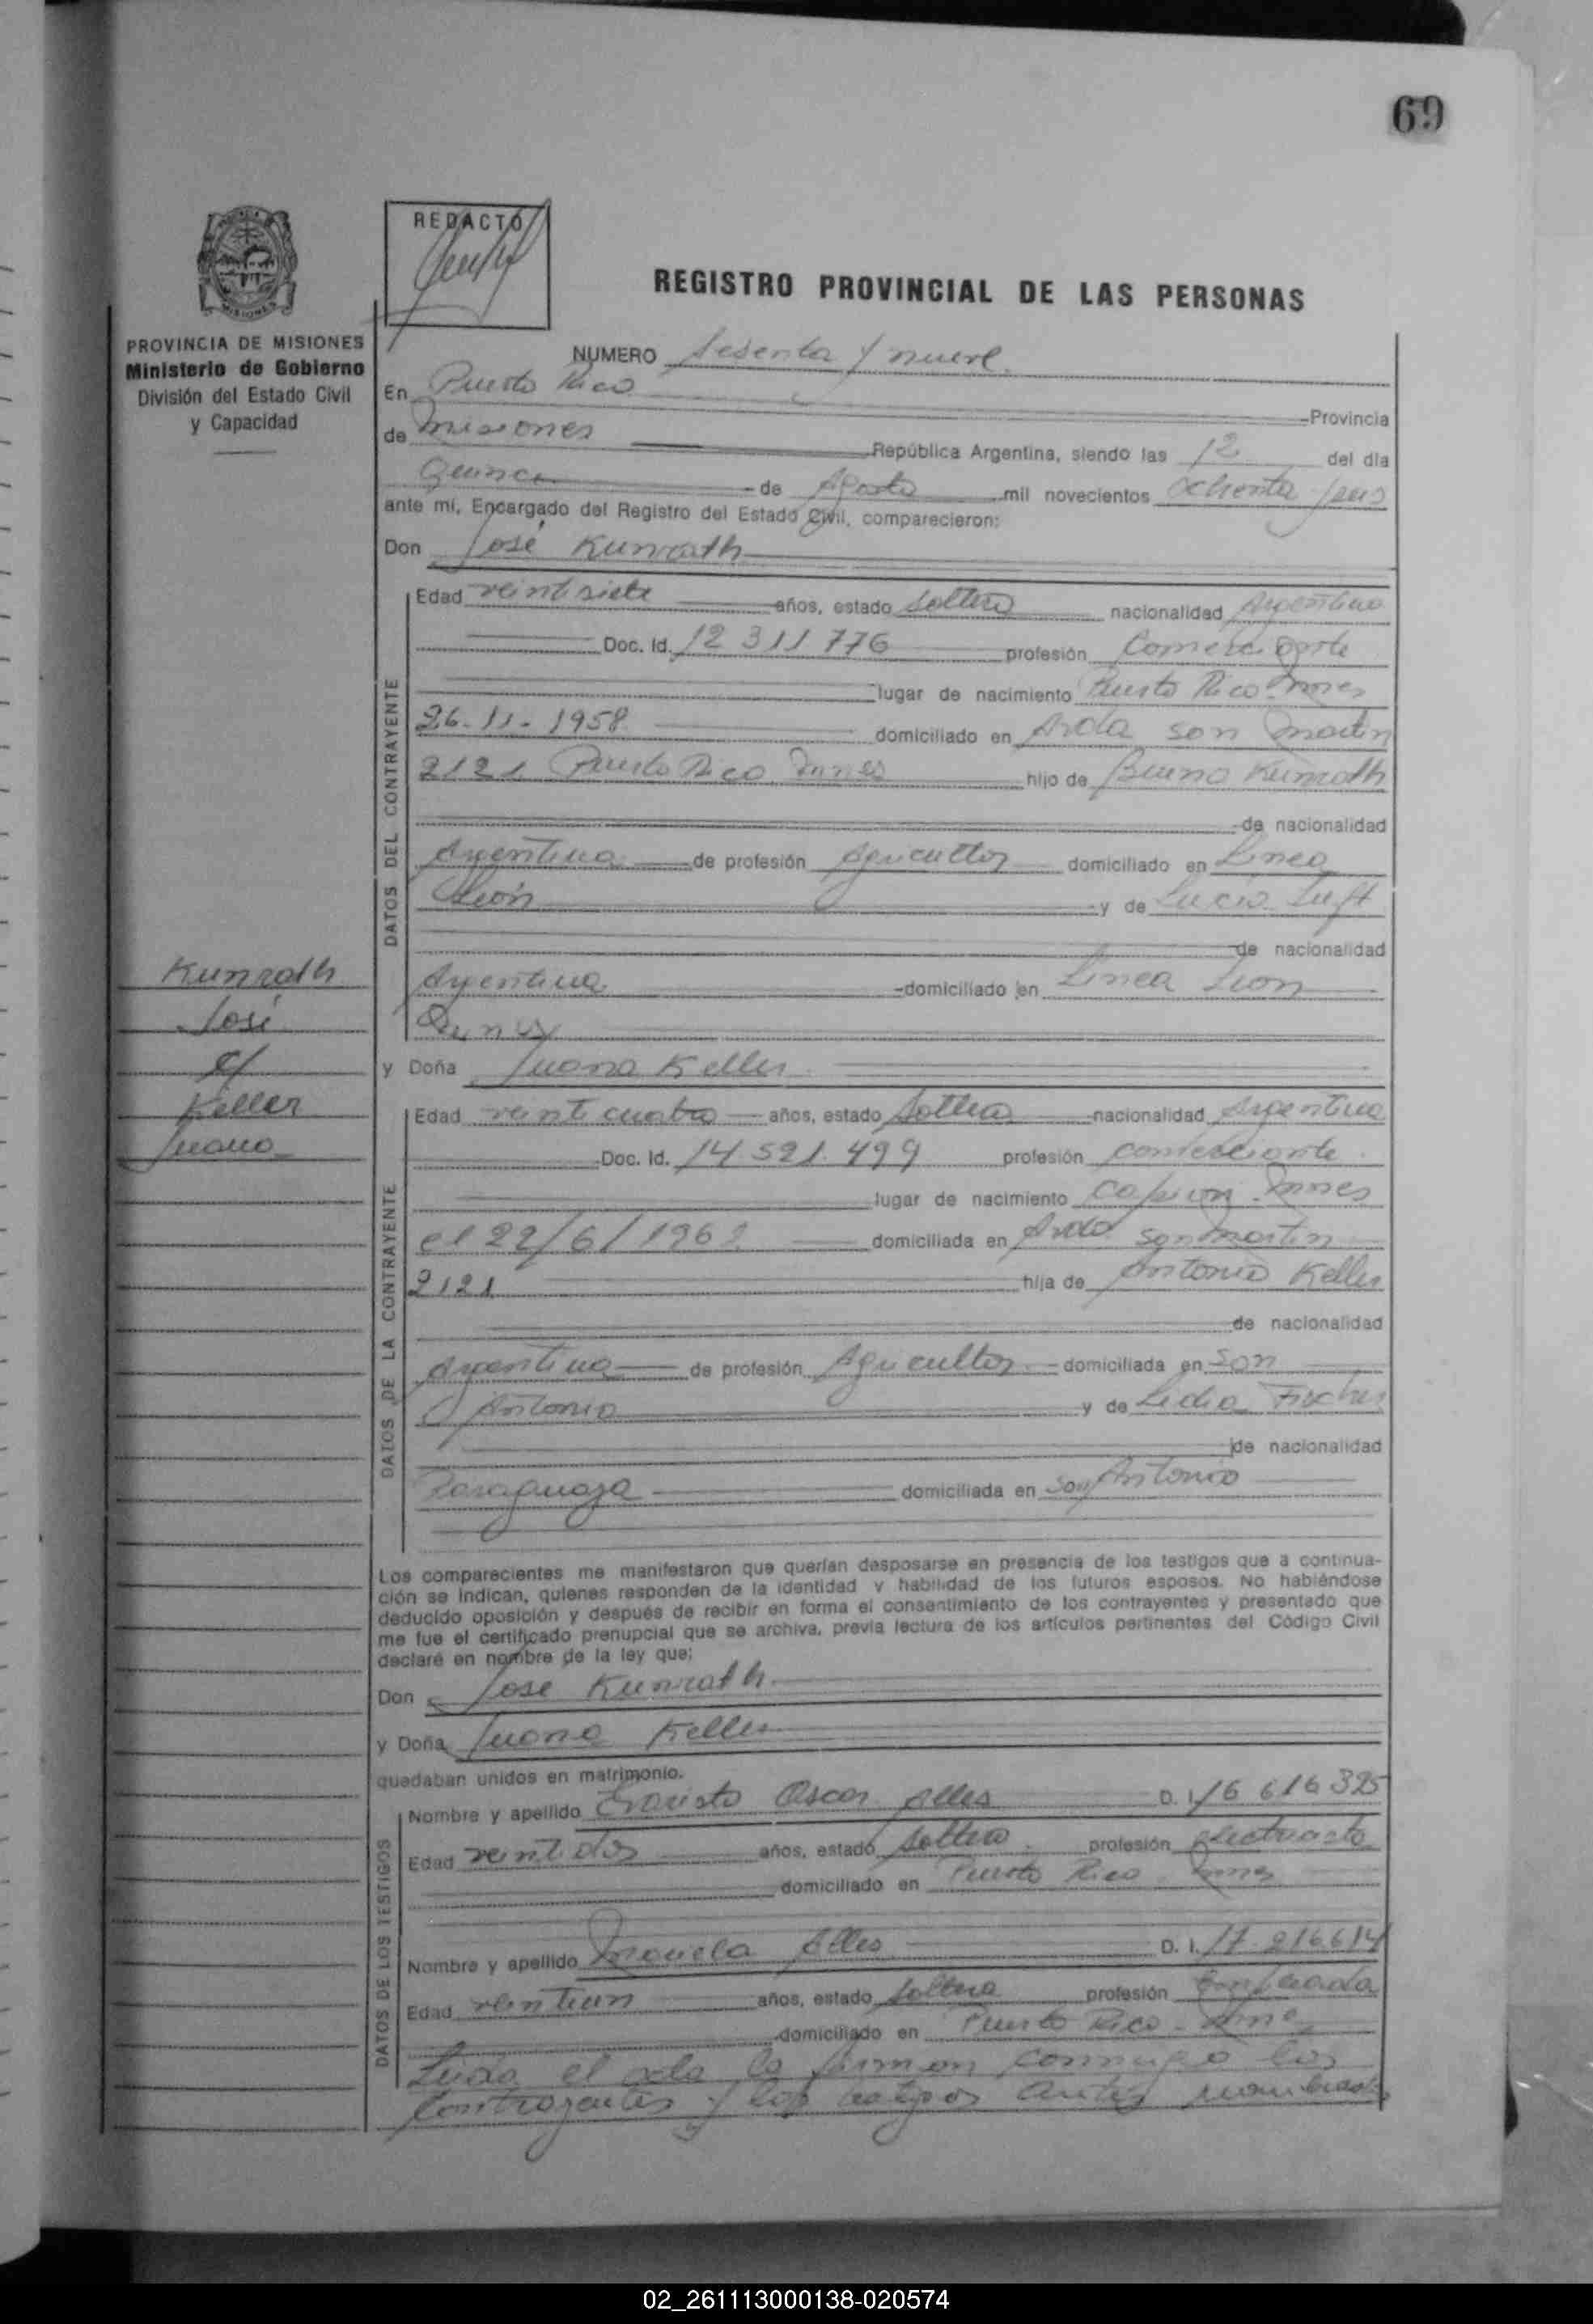 69
REDACTO
REGISTRO PROVINCIAL DE LAS PERSONAS
PROVINCIA DE MISIONES
Ministerio de Gobierno
División del Estado Civil
y Capacidad
NUMERO Sesenta y nueve.
En Puerto Rico Provincia
de Misiones República Argentina, siendo las 12 del día
Quince de Agosto mil novecientos ochenta y seis
ante mí, Encargado del Registro del Estado Civil, comparecieron:
Don José Kunrath
DATOS DEL CONTRAYENTE
Edad veintisiete años, estado soltero nacionalidad Argentino
Doc. Id. 12 311 776 profesión Comerciante
lugar de nacimiento Puerto Rico Mnes
26-11-1958 domiciliado en Avda San Martin
2121 Puerto Rico Mnes hijo de Bruno Kunrath
de nacionalidad
Argentina de profesión Agricultor domiciliado en Linea
León y de Lucia Luft
de nacionalidad
Argentina domiciliado en Linea Leon
Kunrath
José
c/
Keller
Juana
y Doña Juana Keller
DATOS DE LA CONTRAYENTE
Edad veinticuatro años, estado soltera nacionalidad Argentina
Doc. Id. 14.521.499 profesión comerciante
lugar de nacimiento Capiovi Mnes
el 22/6/1962 domiciliada en Avda San Martin
2121 hija de Antonio Keller
de nacionalidad
Argentina de profesión Agricultor domiciliada en San
Antonio y de Lidia Fischer
de nacionalidad
Paraguaya domiciliada en San Antonio
Los comparecientes me manifestaron que querían desposarse en presencia de los testigos que a continua-
ción se indican, quienes responden de la identidad y habilidad de los futuros esposos. No habiéndose
deducido oposición y después de recibir en forma el consentimiento de los contrayentes y presentado que
me fue el certificado prenupcial que se archiva, previa lectura de los artículos pertinentes del Código Civil
declaré en nombre de la ley que:
Don José Kunrath
y Doña Juana Keller
quedaban unidos en matrimonio.
DATOS DE LOS TESTIGOS
Nombre y apellido Evaristo Oscar Alles D. I. 16 616 325
Edad veintidos años, estado soltero profesión
domiciliado en Puerto Rico Mnes
Nombre y apellido Manuela Alles D. I. 17.216.614
Edad veintiun años, estado soltera profesión Empleada
domiciliado en Puerto Rico - Mnes
Leida el acta la firman conmigo los
contrayentes y los testigos antes nombrados
02_261113000138-020574